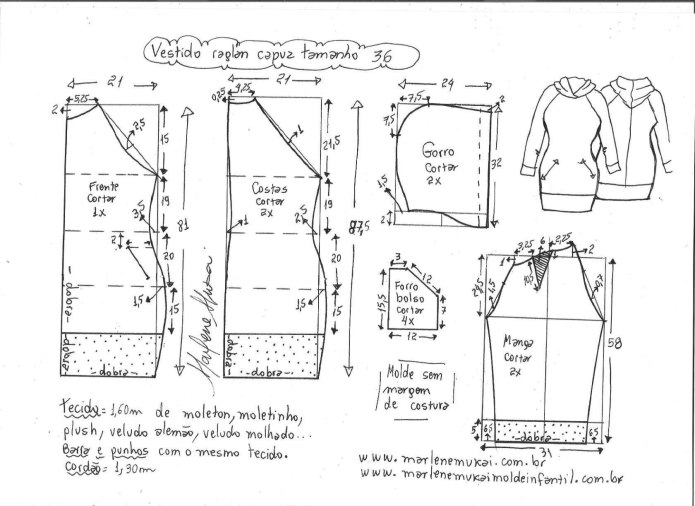 Vestido raglan capuz tamanho 36
21
5,25
2
2,5
15
19
Frente
cortar
1x
3,5
2
20
81
1,5
15
dobra
dobra
dobra
21
9,25
1
21,5
Costas
cortar
2x
19
1
2,5
20
87,5
1,5
15
dobra
dobra
Marlene Mukai
24
7,5
2
7,5
Gorro
cortar
2x
32
1,5
2
3
12
Forro
bolso
cortar
4x
15,5
7
12
Molde sem
margem
de costura
3,25
6
2,25
1
2
10,5
Manga
cortar
2x
58
5
6,5
dobra
6,5
31
Tecido = 1,60m de moleton, moletinho,
plush, veludo alemão, veludo molhado...
Barra e punhos com o mesmo tecido.
Cordão = 1,30m
www.marlenemukai.com.br
www.marlenemukaimoldeinfantil.com.br